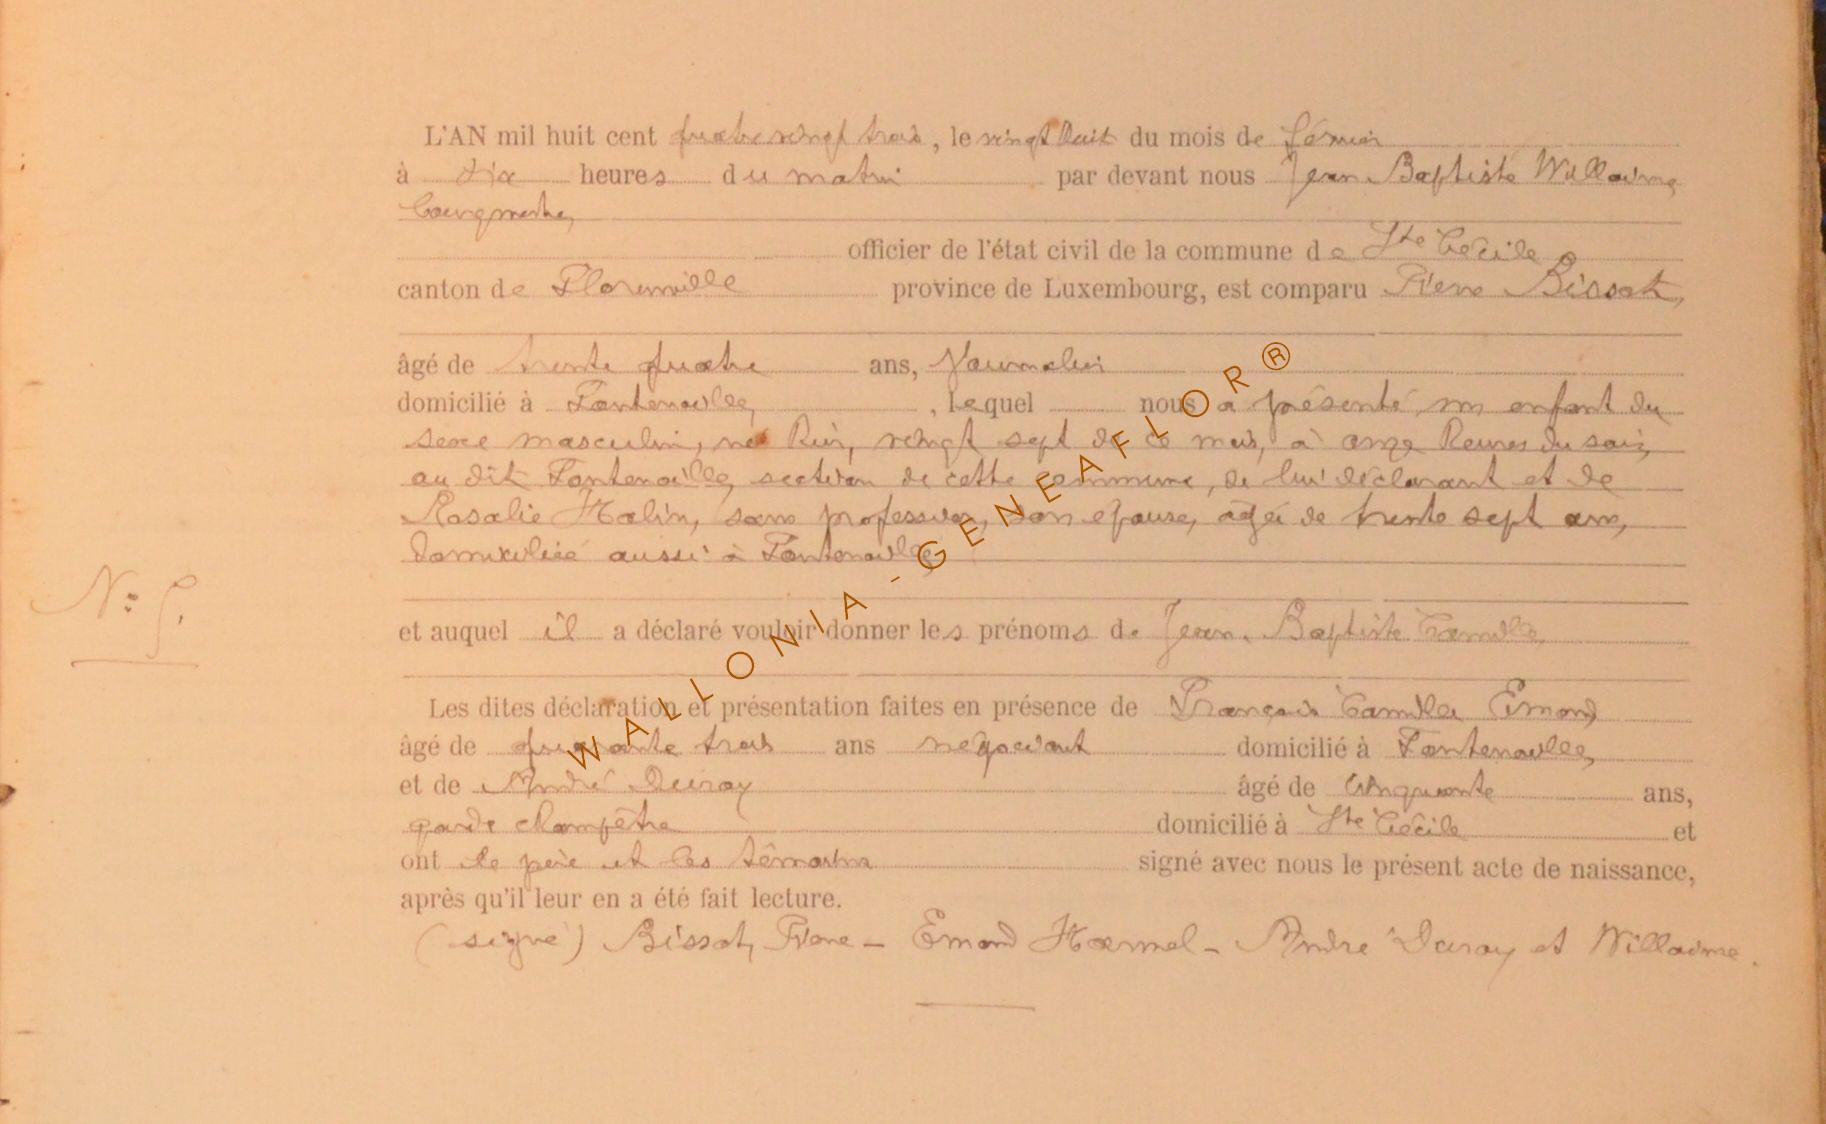 L'AN mil huit cent quatre vingt trois, le vingt huit du mois de février
à dix heures du matin par devant nous Jean Baptiste Willaime,
bourgmestre,
officier de l'état civil de la commune de Ste Cécile
canton de Florenville province de Luxembourg, est comparu Pierre Bissot,
âgé de trente quatre ans, Journalier
domicilié à Fontenoille, lequel nous a présenté un enfant du
sexe masculin, né hier, vingt sept de ce mois, à onze heures du soir,
au dit Fontenoille, section de cette commune, de lui déclarant et de
Rosalie Halin, sans profession, son épouse, agée de trente sept ans,
domiciliée aussi à Fontenoille
N° 5.
et auquel il a déclaré vouloir donner les prénoms de Jean Baptiste Camille
Les dites déclaration et présentation faites en présence de François Camille Emond
âgé de quarante trois ans négociant domicilié à Fontenoille,
et de André Duroy âgé de cinquante ans,
garde champêtre domicilié à Ste Cécile et
ont le père et les témoins signé avec nous le présent acte de naissance,
après qu'il leur en a été fait lecture.
(signé) Bissot, Pierre - Emond Hamel - André Duroy et Willaime.
WALLONIA - GENEAFLOR®